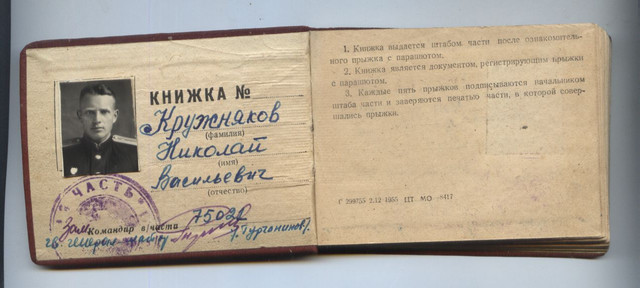 КНИЖКА №
Кружняков
(фамилия)
Николай
(имя)
Васильевич
(отчество)
ЧАСТЬ
Зам Командир в/части
гв генерал
1. Книжка выдается штабом части после ознакомитель-
ного прыжка с парашютом.
2. Книжка является документом, регистрирующим прыжки
с парашютом.
3. Каждые пять прыжков подписываются начальником
штаба части и заверяются печатью части, в которой совер-
шались прыжки.
Г 299755 2.12 1955 ЦТ МО